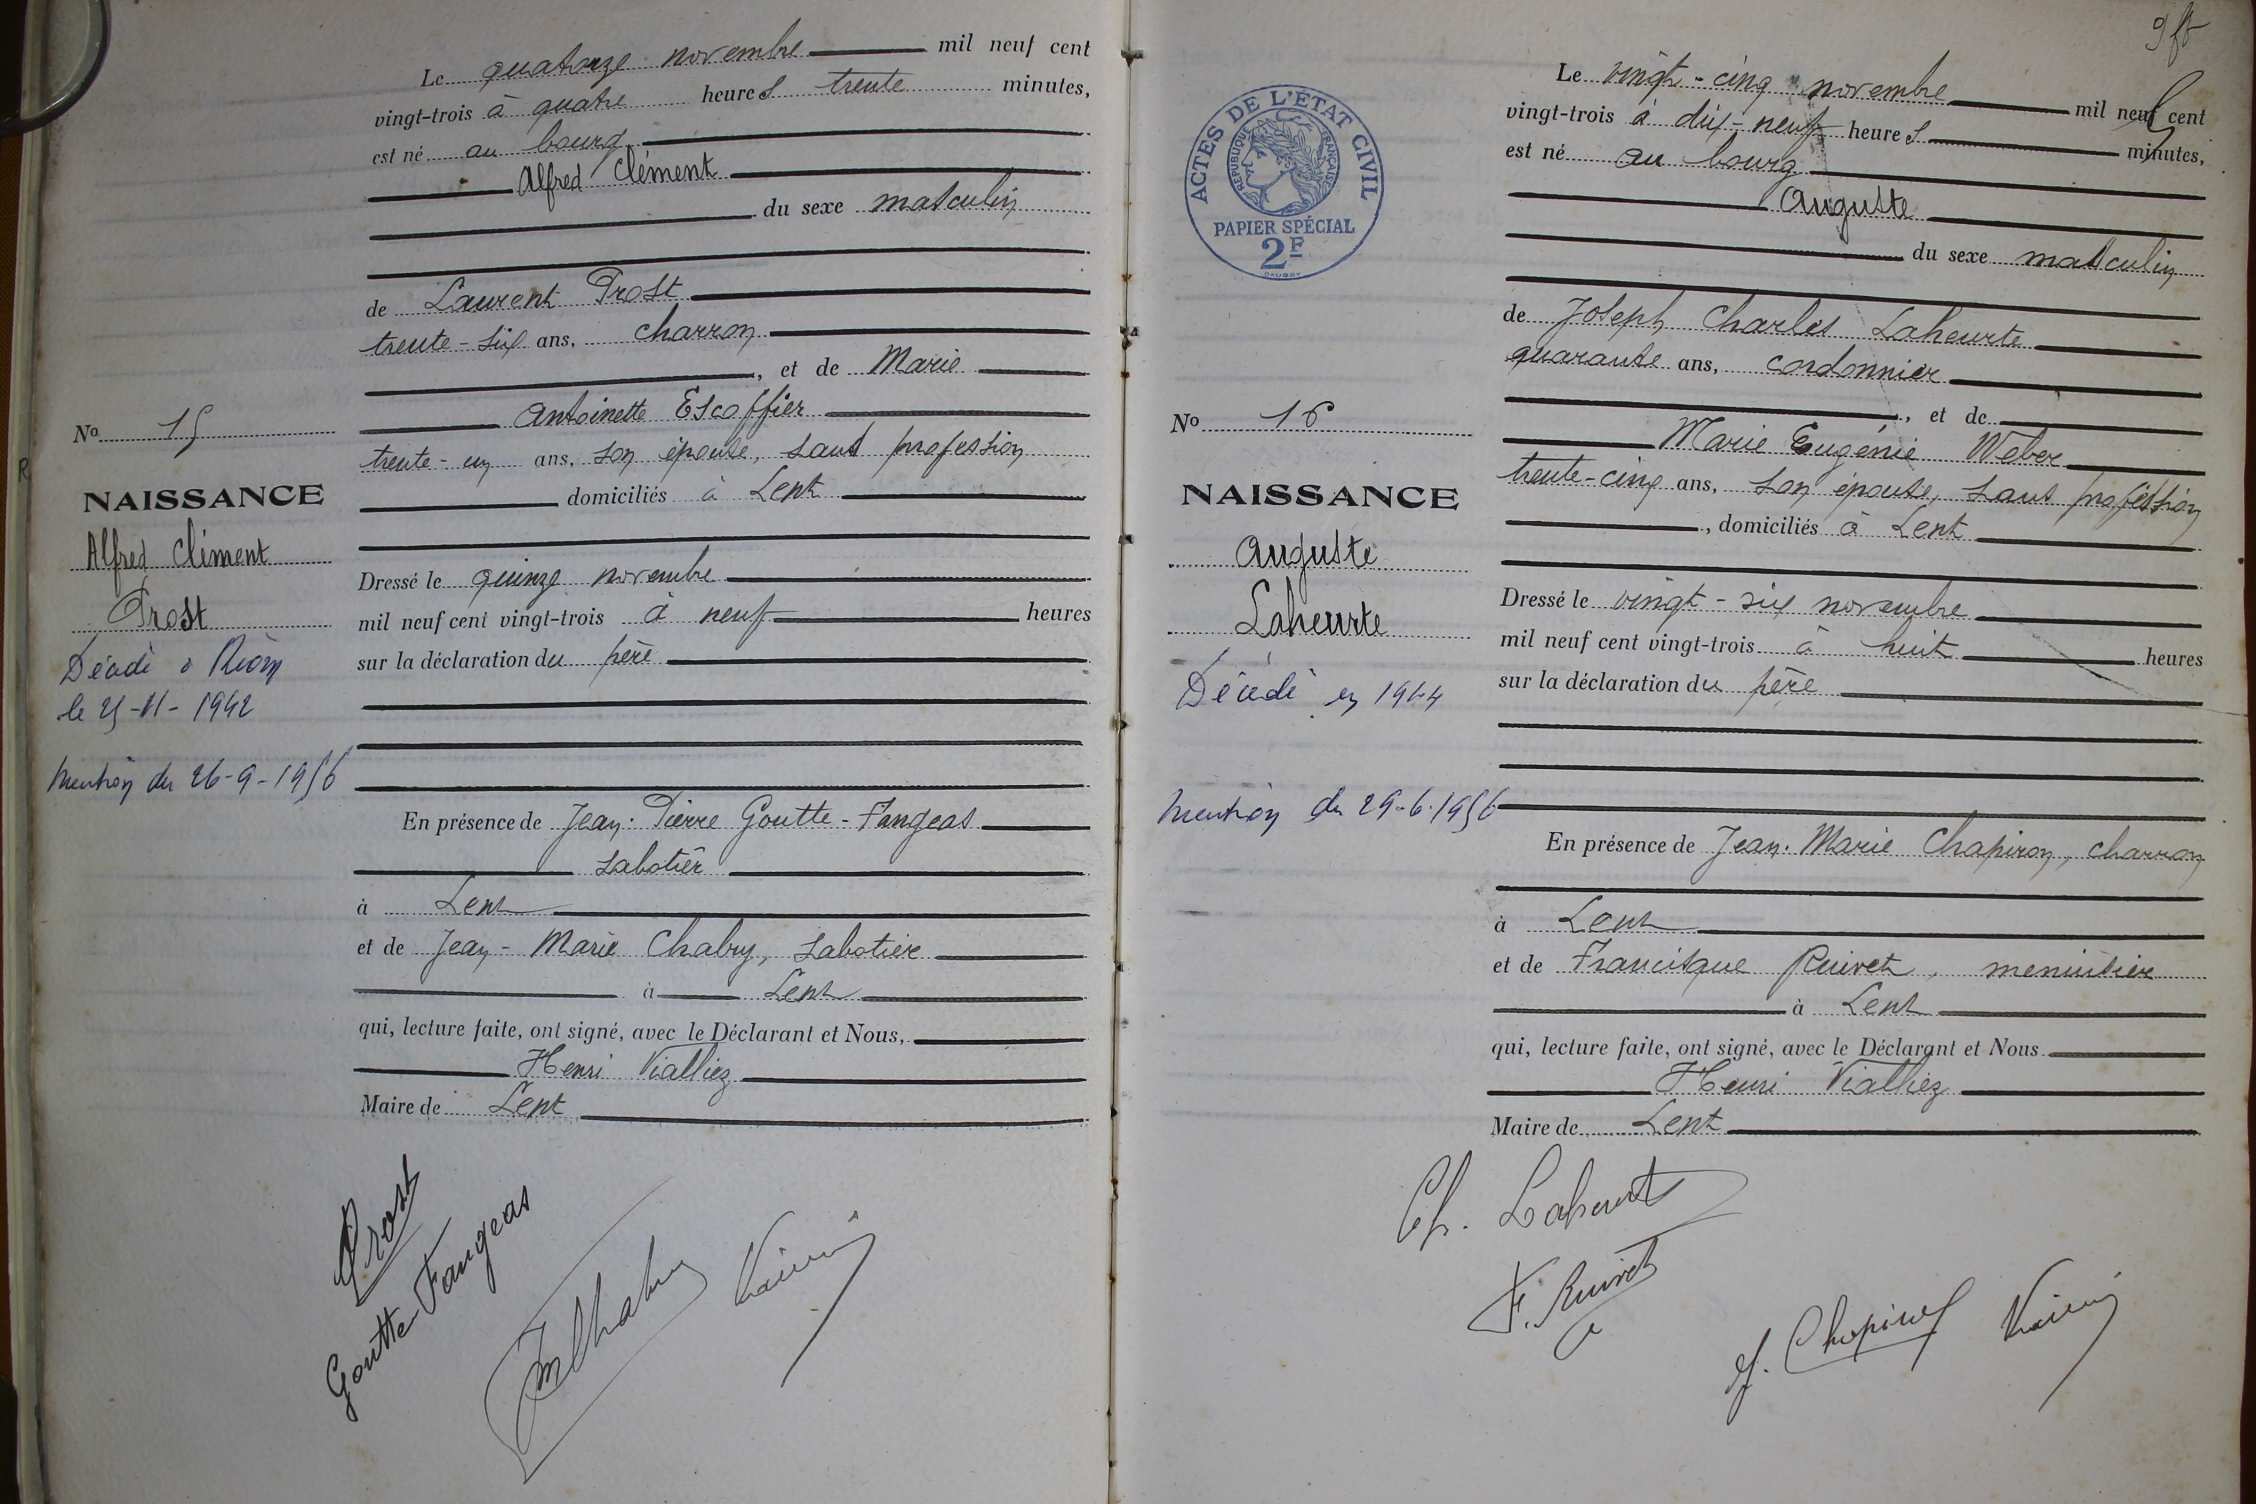 Le quatorze novembre mil neuf cent
vingt-trois à quatre heures trente minutes,
est né au bourg
Alfred Clément
du sexe masculin
de Laurent Prost
trente-six ans, charron
, et de Marie
Antoinette Escoffier
trente-un ans, son épouse, sans profession
domiciliés à Lent
Dressé le quinze novembre
mil neuf cent vingt-trois à neuf heures
sur la déclaration du père
En présence de Jean-Pierre Goutte-Fangeas
sabotier
à Lent
et de Jean-Marie Chabry, sabotier
à Lent
qui, lecture faite, ont signé, avec le Déclarant et Nous,
Henri Vialliez
Maire de Lent
No 15
NAISSANCE
Alfred Clément
Prost
Décédé à Riom
le 25-11-1942
Mention du 26-9-1956
Prost
Goutte-Fangeas
ACTES DE L'ÉTAT CIVIL
RÉPUBLIQUE FRANÇAISE
PAPIER SPÉCIAL
2F
Le vingt-cinq novembre mil neuf cent
vingt-trois à dix-neuf heures minutes,
est né au bourg
Auguste
du sexe masculin
de Joseph Charles Laheurte
quarante ans, cordonnier
, et de
Marie Eugénie Weber
trente-cinq ans, son épouse, sans profession
, domiciliés à Lent
Dressé le vingt-six novembre
mil neuf cent vingt-trois à huit heures
sur la déclaration du père
En présence de Jean-Marie Chapiron, charron
à Lent
et de Francisque Ruivet, menuisier
à Lent
qui, lecture faite, ont signé, avec le Déclarant et Nous
Henri Vialliez
Maire de Lent
No 16
NAISSANCE
Auguste
Laheurte
Décédé en 1944
Mention du 29-6-1956
Ch. Laheurte
F. Ruivet